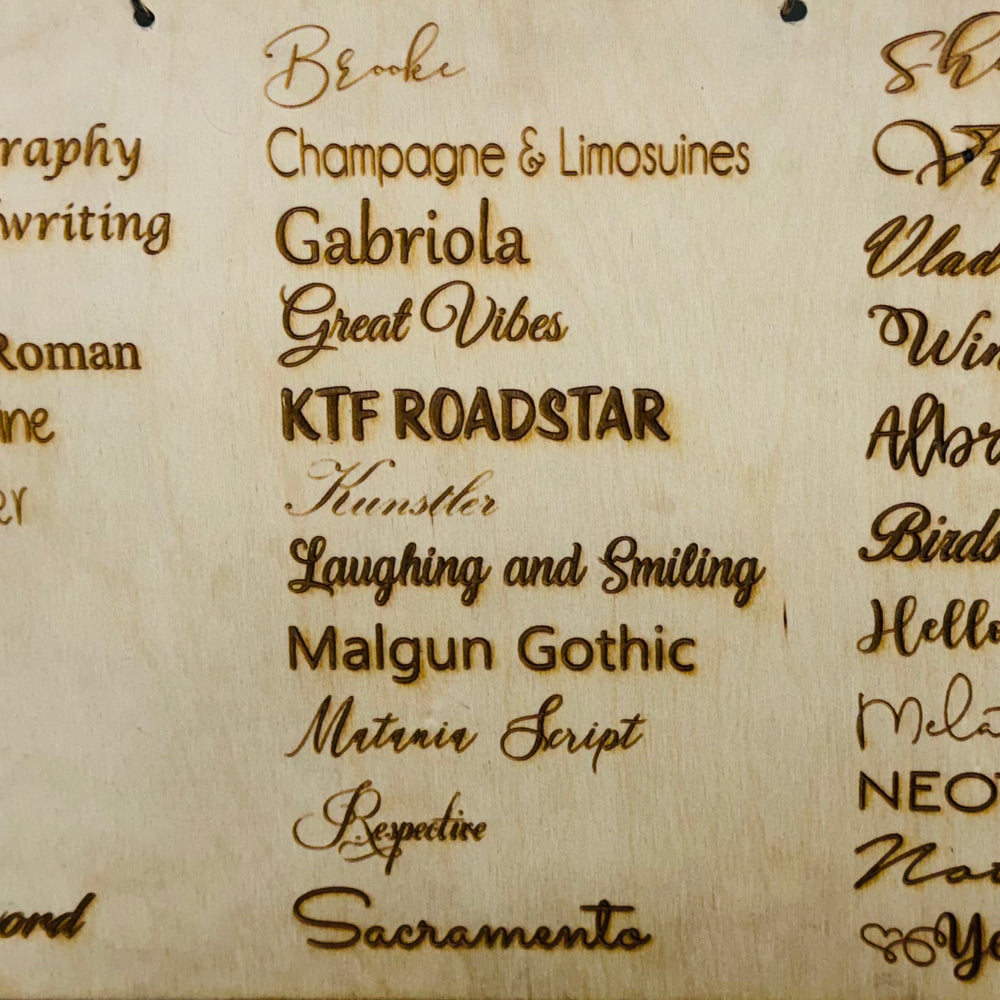 raphy
writing
Roman
ine
er
ord
Brooke
Champagne & Limosuines
Gabriola
Great Vibes
KTF ROADSTAR
Kunstler
Laughing and Smiling
Malgun Gothic
Matania Script
Respective
Sacramento
Sh
Vlad
Win
Albr
Birds
Hello
Mela
NEOT
Not
Yo